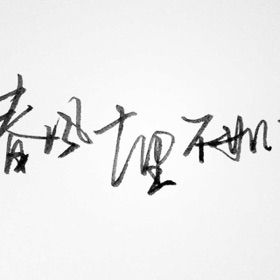 春风十里不如